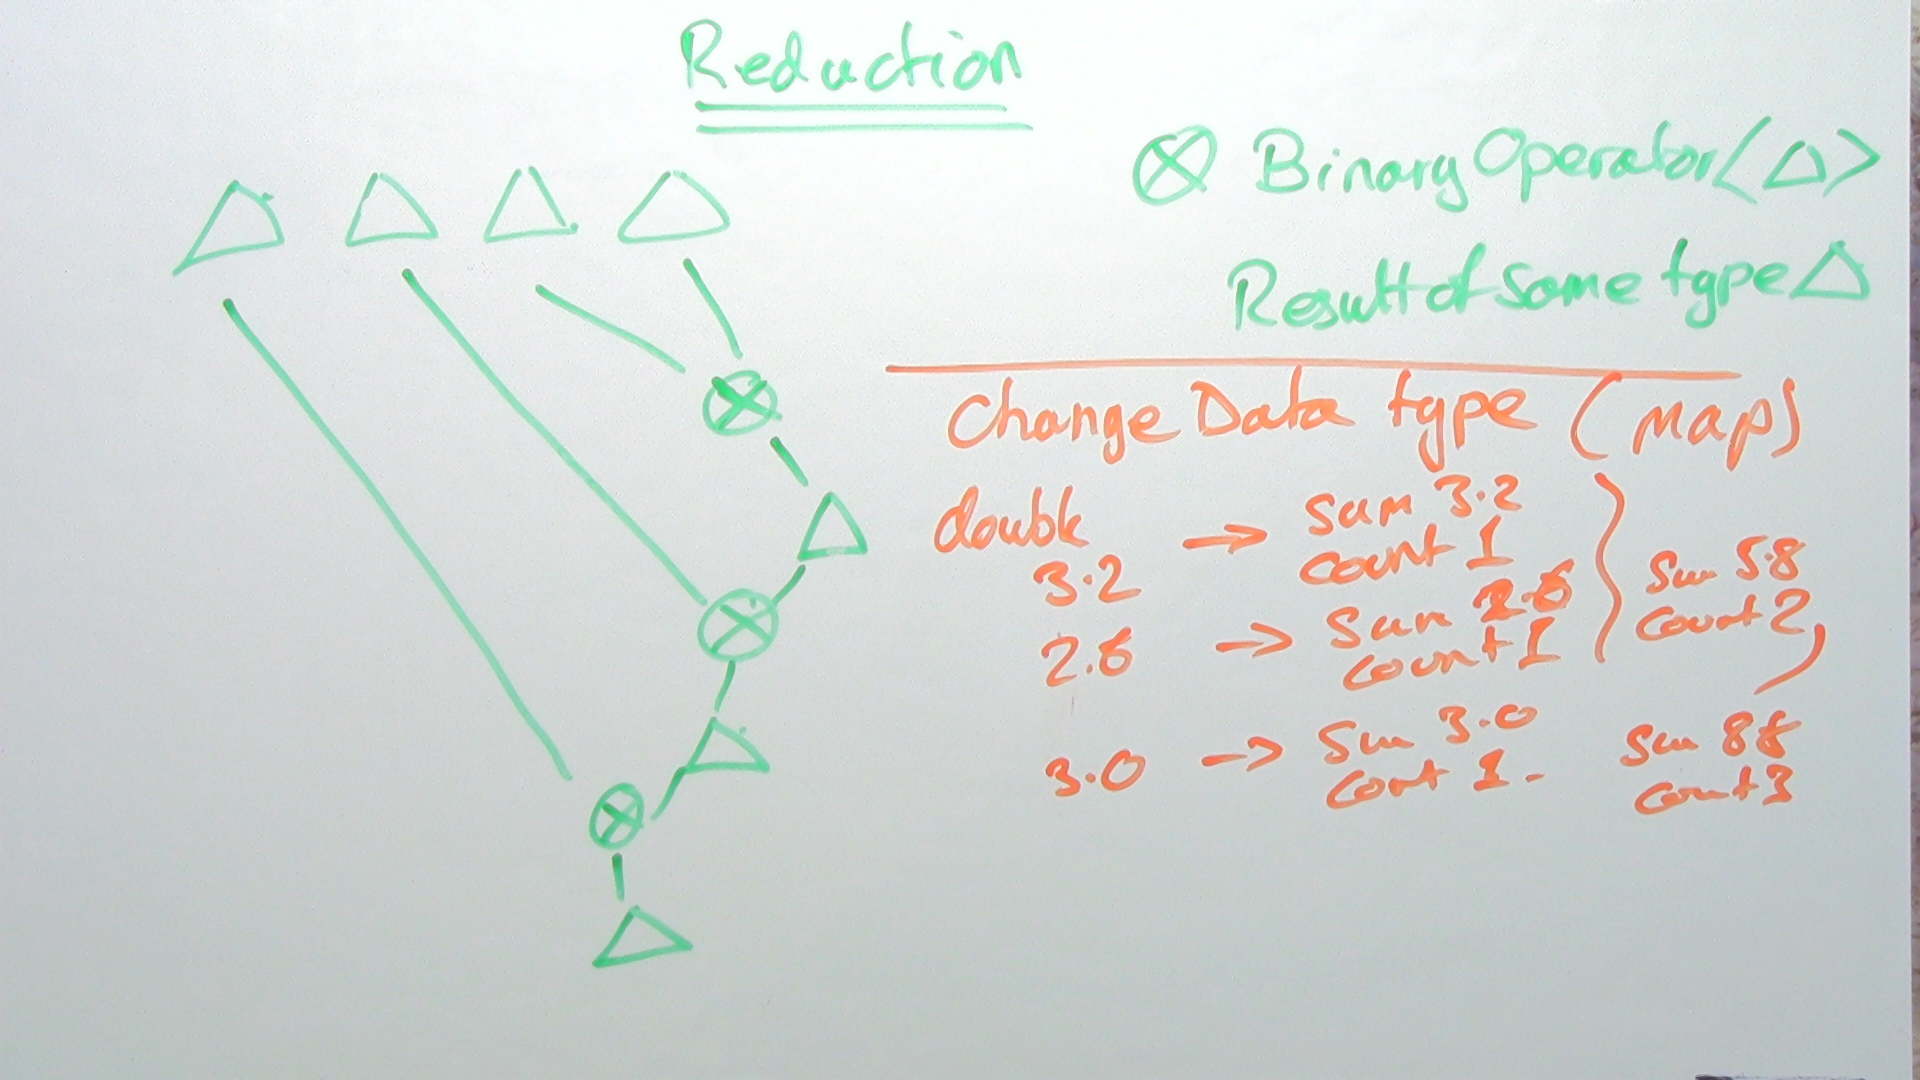 Reduction
⊗ BinaryOperator<△>
Result of same type △
Change Data type (map)
double
3.2 → sum 3.2
count 1
2.6 → sum 2.6
count 1
sum 5.8
count 2
3.0 → sum 3.0
cont 1
sum 8.8
count 3